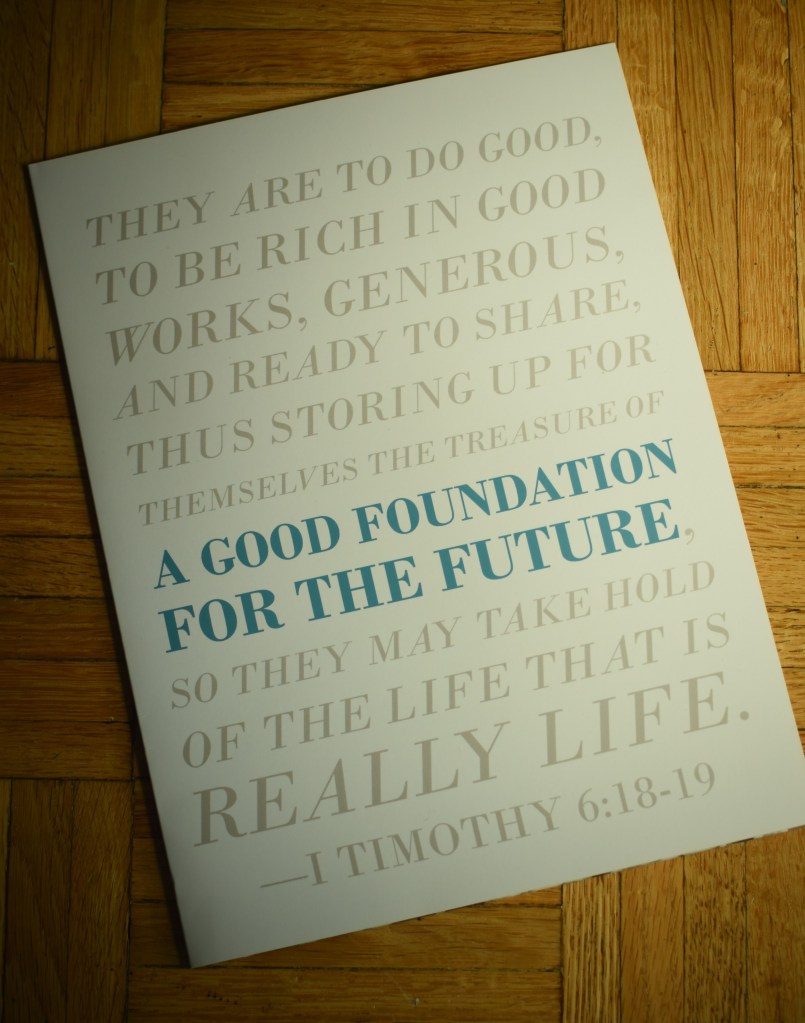 THEY ARE TO DO GOOD,
TO BE RICH IN GOOD
WORKS, GENEROUS,
AND READY TO SHARE,
THUS STORING UP FOR
THEMSELVES THE TREASURE OF
A GOOD FOUNDATION
FOR THE FUTURE,
SO THEY MAY TAKE HOLD
OF THE LIFE THAT IS
REALLY LIFE.
—I TIMOTHY 6:18-19